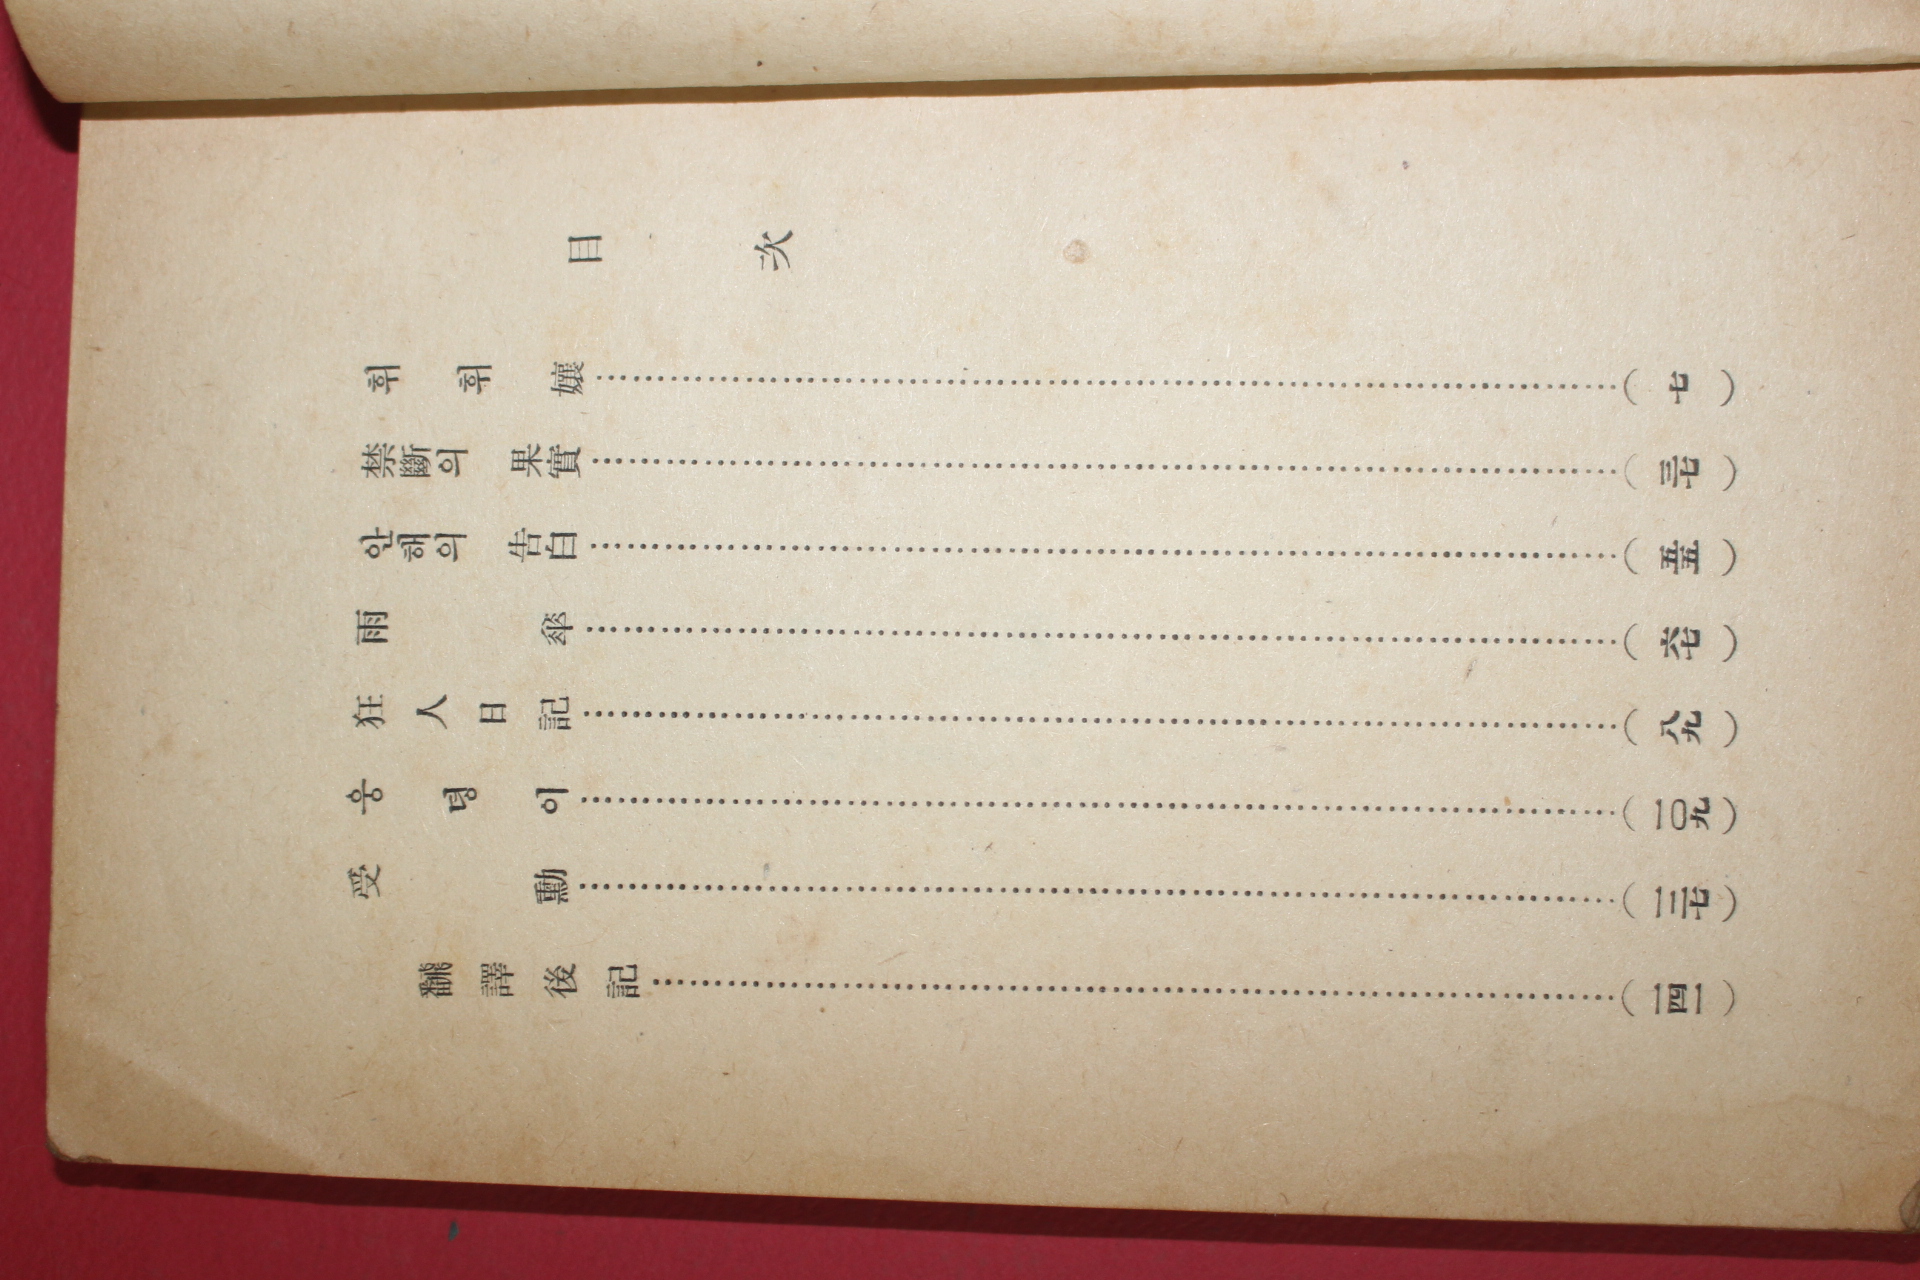 目次
휘휘孃 (七)
禁斷의 果實 (三七)
안해의 告白 (五五)
雨傘 (六七)
狂人日記 (八九)
웅덩이 (一〇九)
受勳 (一二七)
飜譯後記 (一四一)